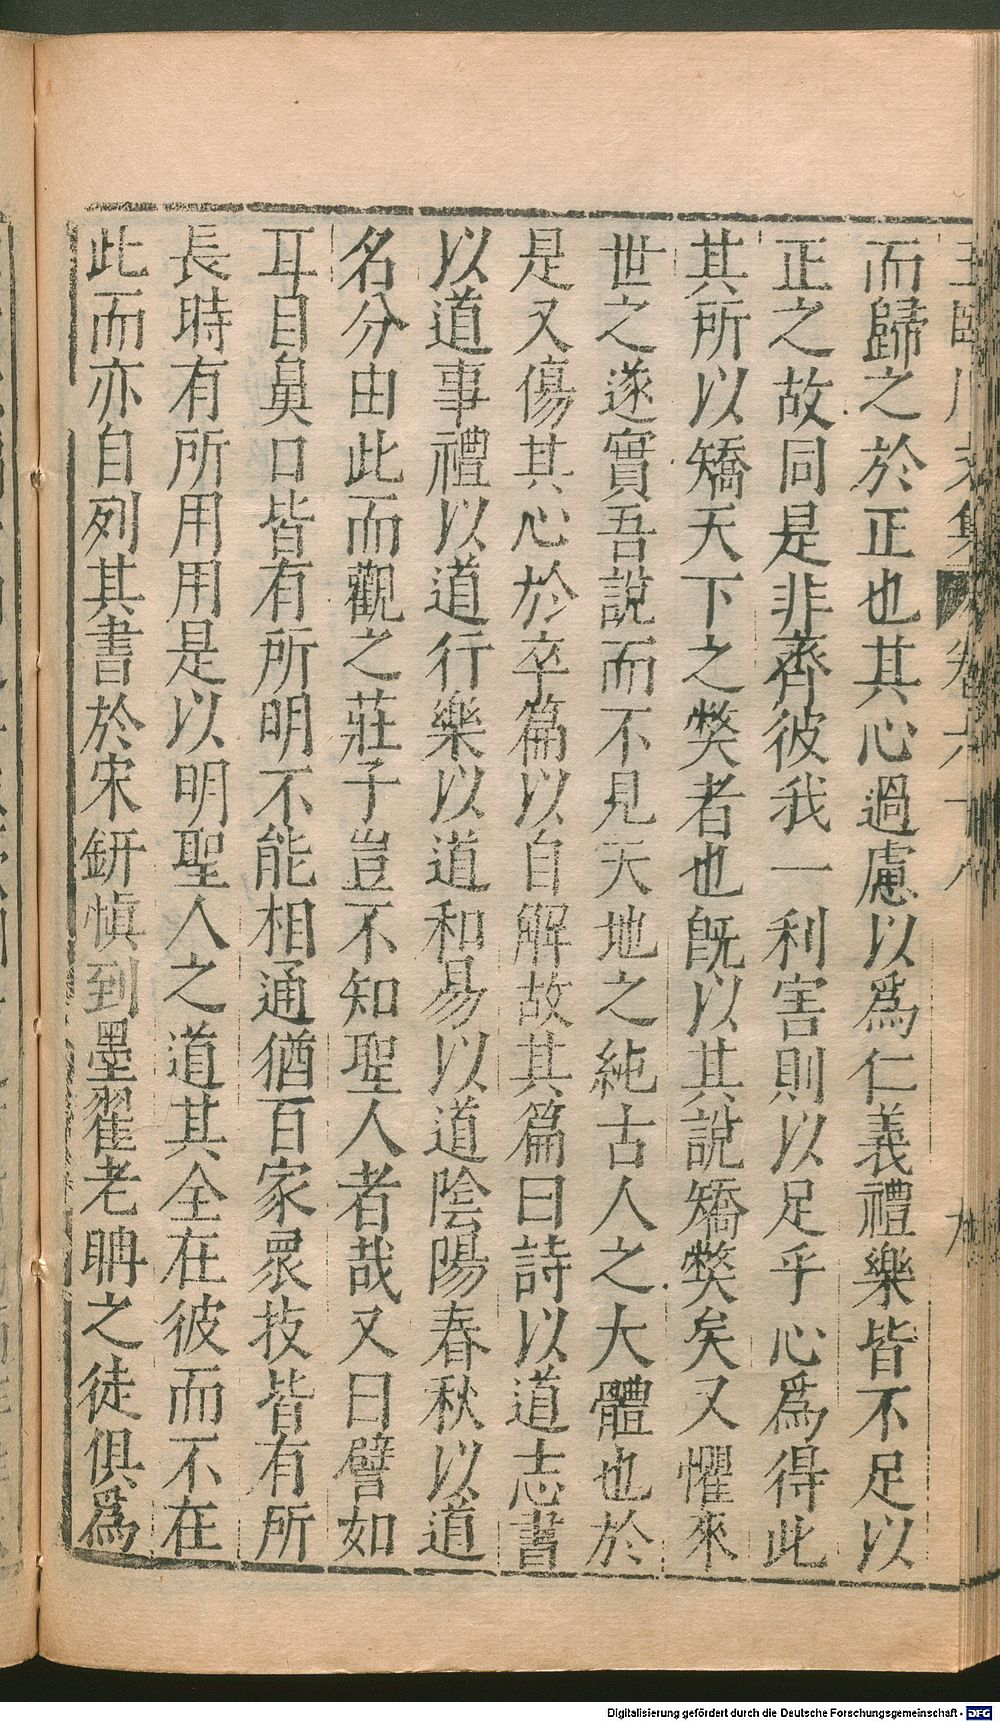 王臨川文集 卷六十八 九
而歸之於正也其心過慮以爲仁義禮樂皆不足以
正之故同是非齊彼我一利害則以足乎心爲得此
其所以矯天下之獘者也旣以其說矯獘矣又懼來
世之遂實吾說而不見天地之純古人之大體也於
是又傷其心於卒篇以自解故其篇曰詩以道志書
以道事禮以道行樂以道和易以道陰陽春秋以道
名分由此而觀之莊子豈不知聖人者哉又曰譬如
耳目鼻口皆有所明不能相通猶百家衆技皆有所
長時有所用用是以明聖人之道其全在彼而不在
此而亦自列其書於宋鈃愼到墨翟老聃之徒俱爲
Digitalisierung gefördert durch die Deutsche Forschungsgemeinschaft - DFG